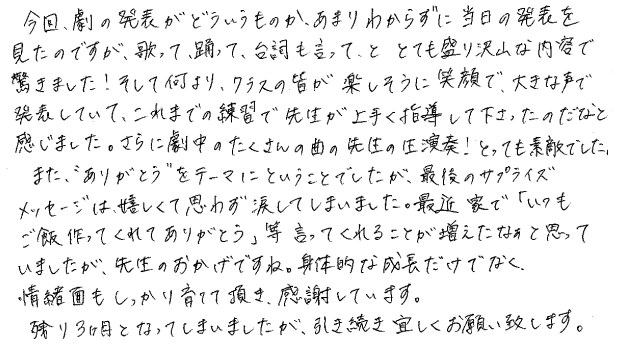 今回、劇の発表がどういうものか、あまりわからずに当日の発表を
見たのですが、歌って、踊って、台詞も言って、と とても盛り沢山な内容で
驚きました！そして何より、クラスの皆が楽しそうに笑顔で、大きな声で
発表していて、これまでの練習で先生が上手く指導して下さったのだなと
感じました。さらに劇中のたくさんの曲の先生の生演奏！とっても素敵でした。
また、"ありがとう"をテーマにということでしたが、最後のサプライズ
メッセージは、嬉しくて思わず涙してしまいました。最近 家で「いつも
ご飯作ってくれてありがとう」等言ってくれることが増えたなぁと思って
いましたが、先生のおかげですね。身体的な成長だけでなく、
情緒面もしっかり育てて頂き、感謝しています。
残り3ヶ月となってしまいましたが、引き続き宜しくお願い致します。